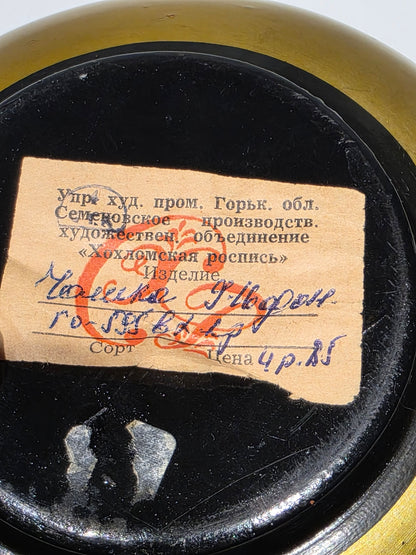 Упр. худ. пром. Горьк. обл.
Семеновское производств.
художествен. объединение
«Хохломская роспись»
Изделие
Чашка
Сорт Цена 4р.85